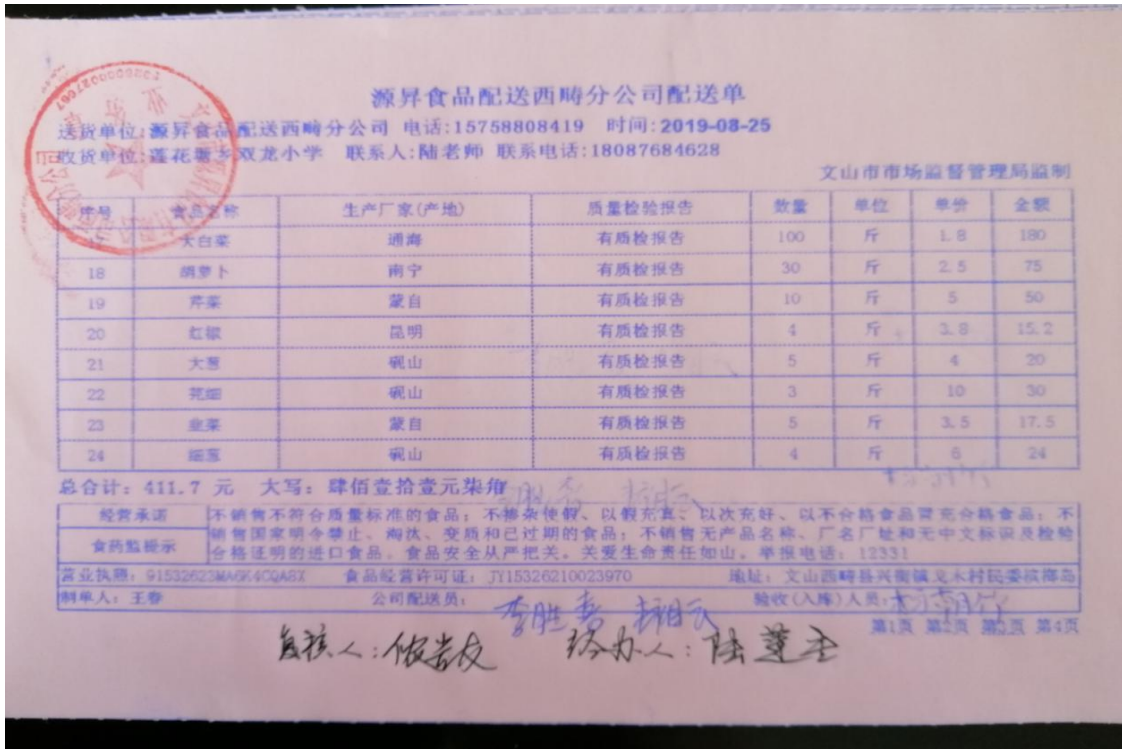 源昇食品配送西畴分公司配送单
送货单位:源昇食品配送西畴分公司 电话:15758808419 时间:2019-08-25
收货单位:莲花塘乡双龙小学 联系人:陆老师 联系电话:18087684628
文山市市场监督管理局监制
序号 食品名称 生产厂家(产地) 质量检验报告 数量 单位 单价 金额
17 大白菜 通海 有质检报告 100 斤 1.8 180
18 胡萝卜 南宁 有质检报告 30 斤 2.5 75
19 芹菜 蒙自 有质检报告 10 斤 5 50
20 红椒 昆明 有质检报告 4 斤 3.8 15.2
21 大葱 砚山 有质检报告 5 斤 4 20
22 芫细 砚山 有质检报告 3 斤 10 30
23 韭菜 蒙自 有质检报告 5 斤 3.5 17.5
24 细葱 砚山 有质检报告 4 斤 6 24
总合计: 411.7 元 大写: 肆佰壹拾壹元柒角
经营承诺 不销售不符合质量标准的食品; 不掺杂使假、以假充真、以次充好、以不合格食品冒充合格食品; 不
销售国家明令禁止、淘汰、变质和已过期的食品; 不销售无产品名称、厂名厂址和无中文标识及检验
食药监提示 合格证明的进口食品。食品安全从严把关。关爱生命责任如山。举报电话: 12331
营业执照: 91532623MA6K4CQA8X 食品经营许可证: JY15326210023970 地址: 文山西畴县兴街镇戈木村民委
制单人: 王春 公司配送员: 验收(入库)人员:
第1页 第2页 第3页 第4页
复核人: 经办人: 陆莲